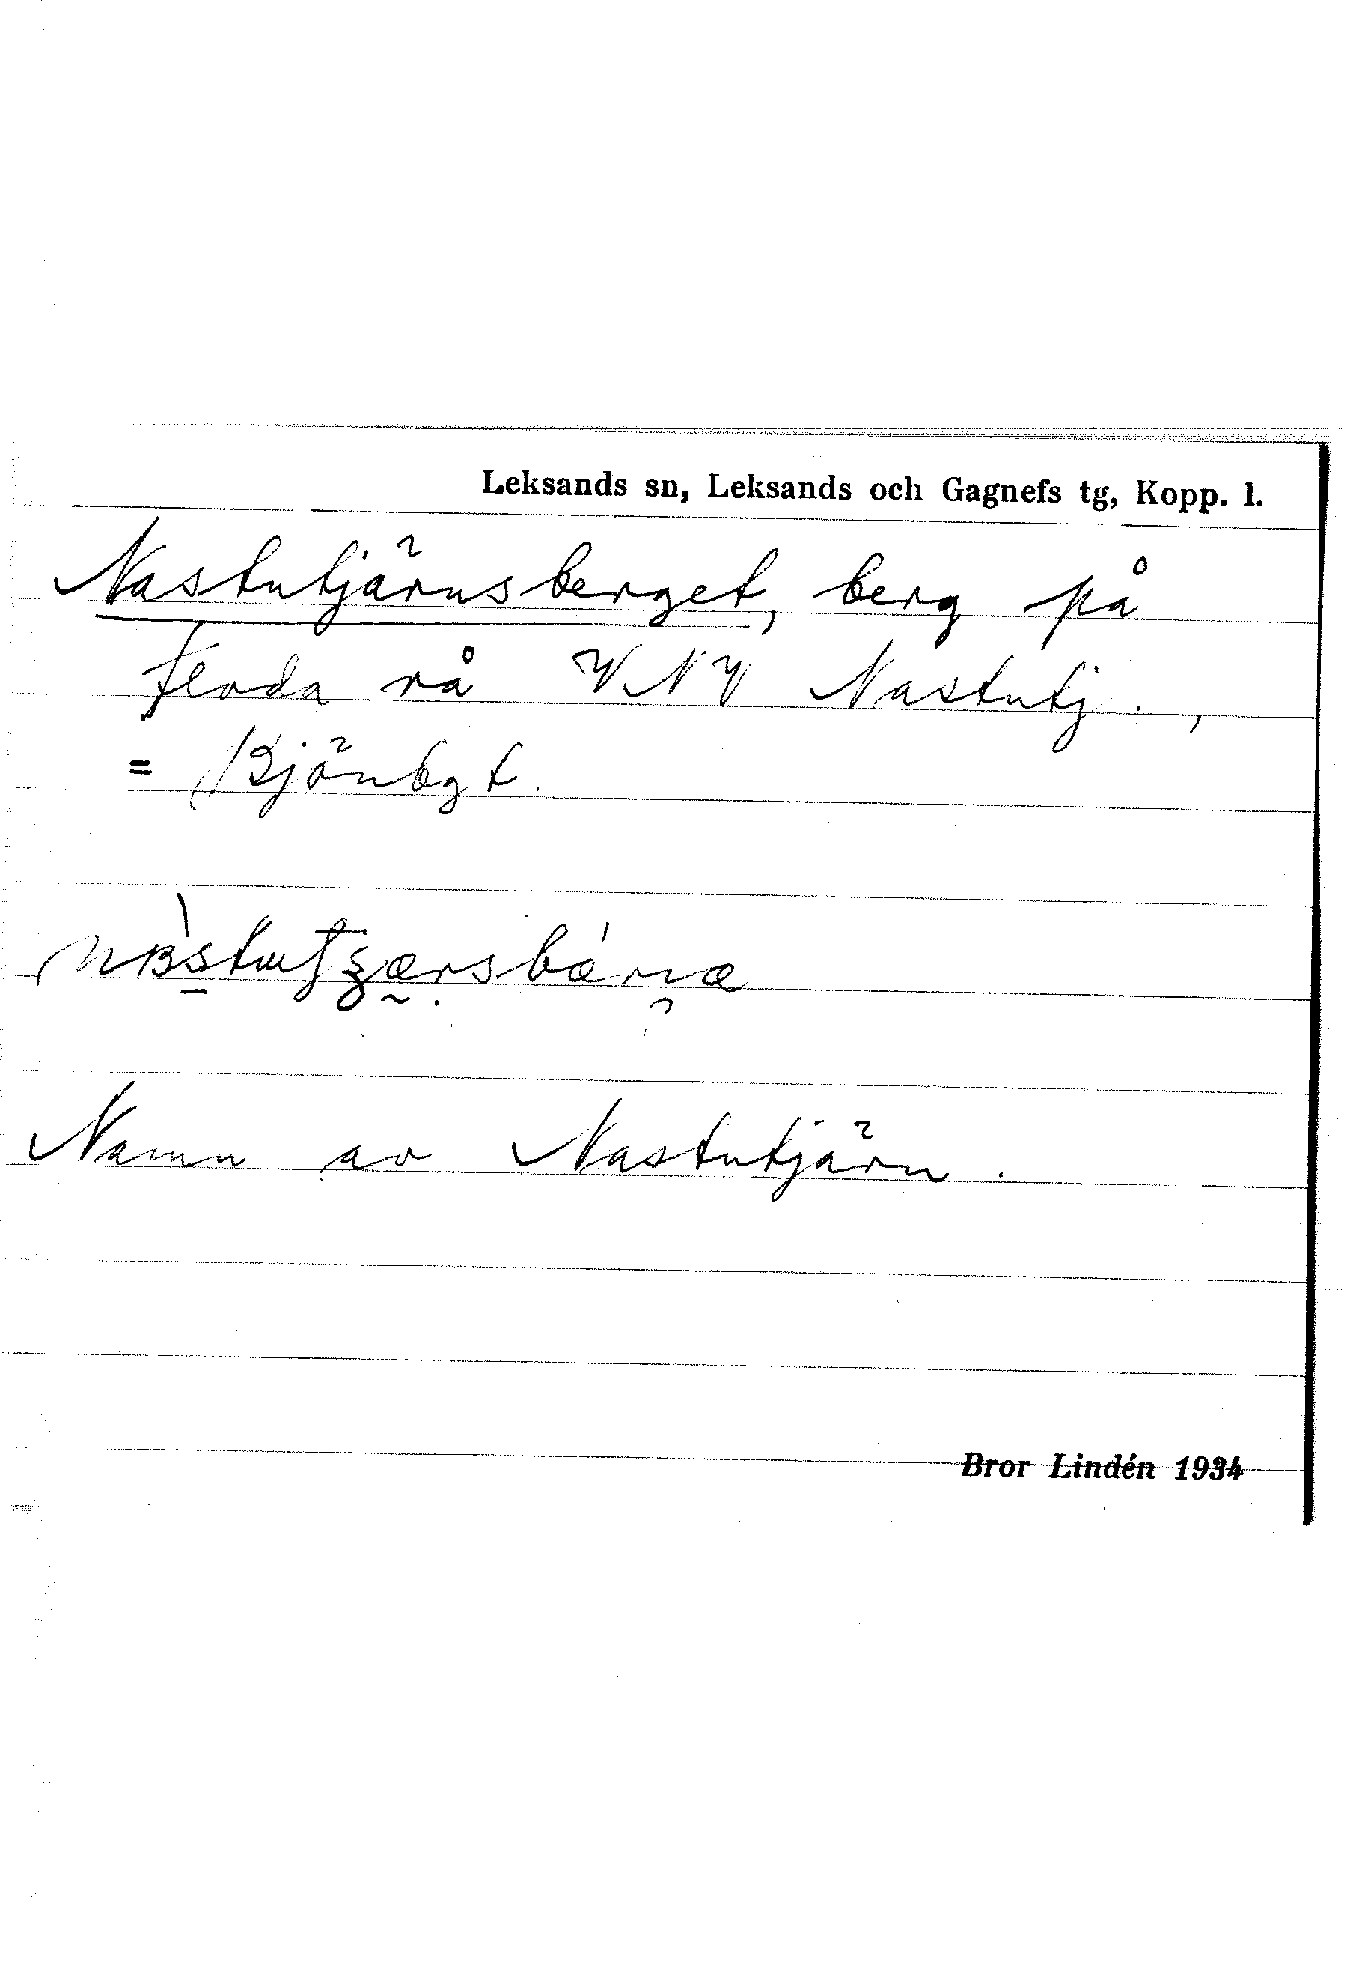 Leksands sn, Leksands och Gagnefs tg, Kopp. l.
Nastutjärnsberget, berg på
Floda rå VNV Nastutj.,
= Björnbgt.
Namn av Nastutjärn.
Bror Lindén 1934